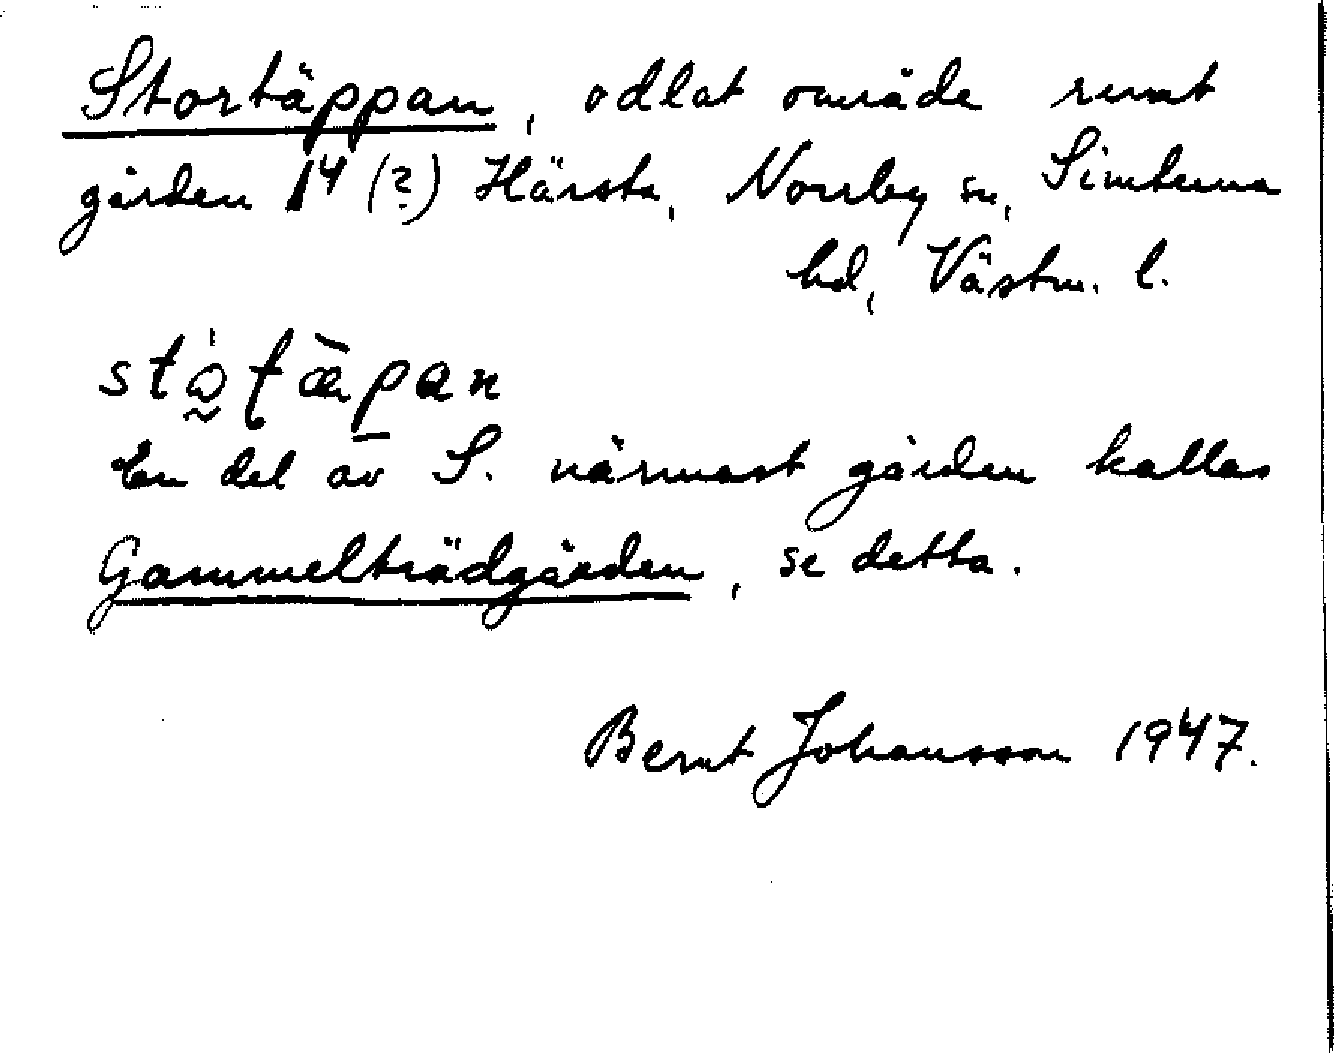 Stortäppan, odlat område runt
gården 14 (?) Härsta, Norrby sn, Simtuna
hd, Västm. l.
En del av S. närmast gården kallas
Gammelträdgården, se detta.
Bernt Johansson 1947.